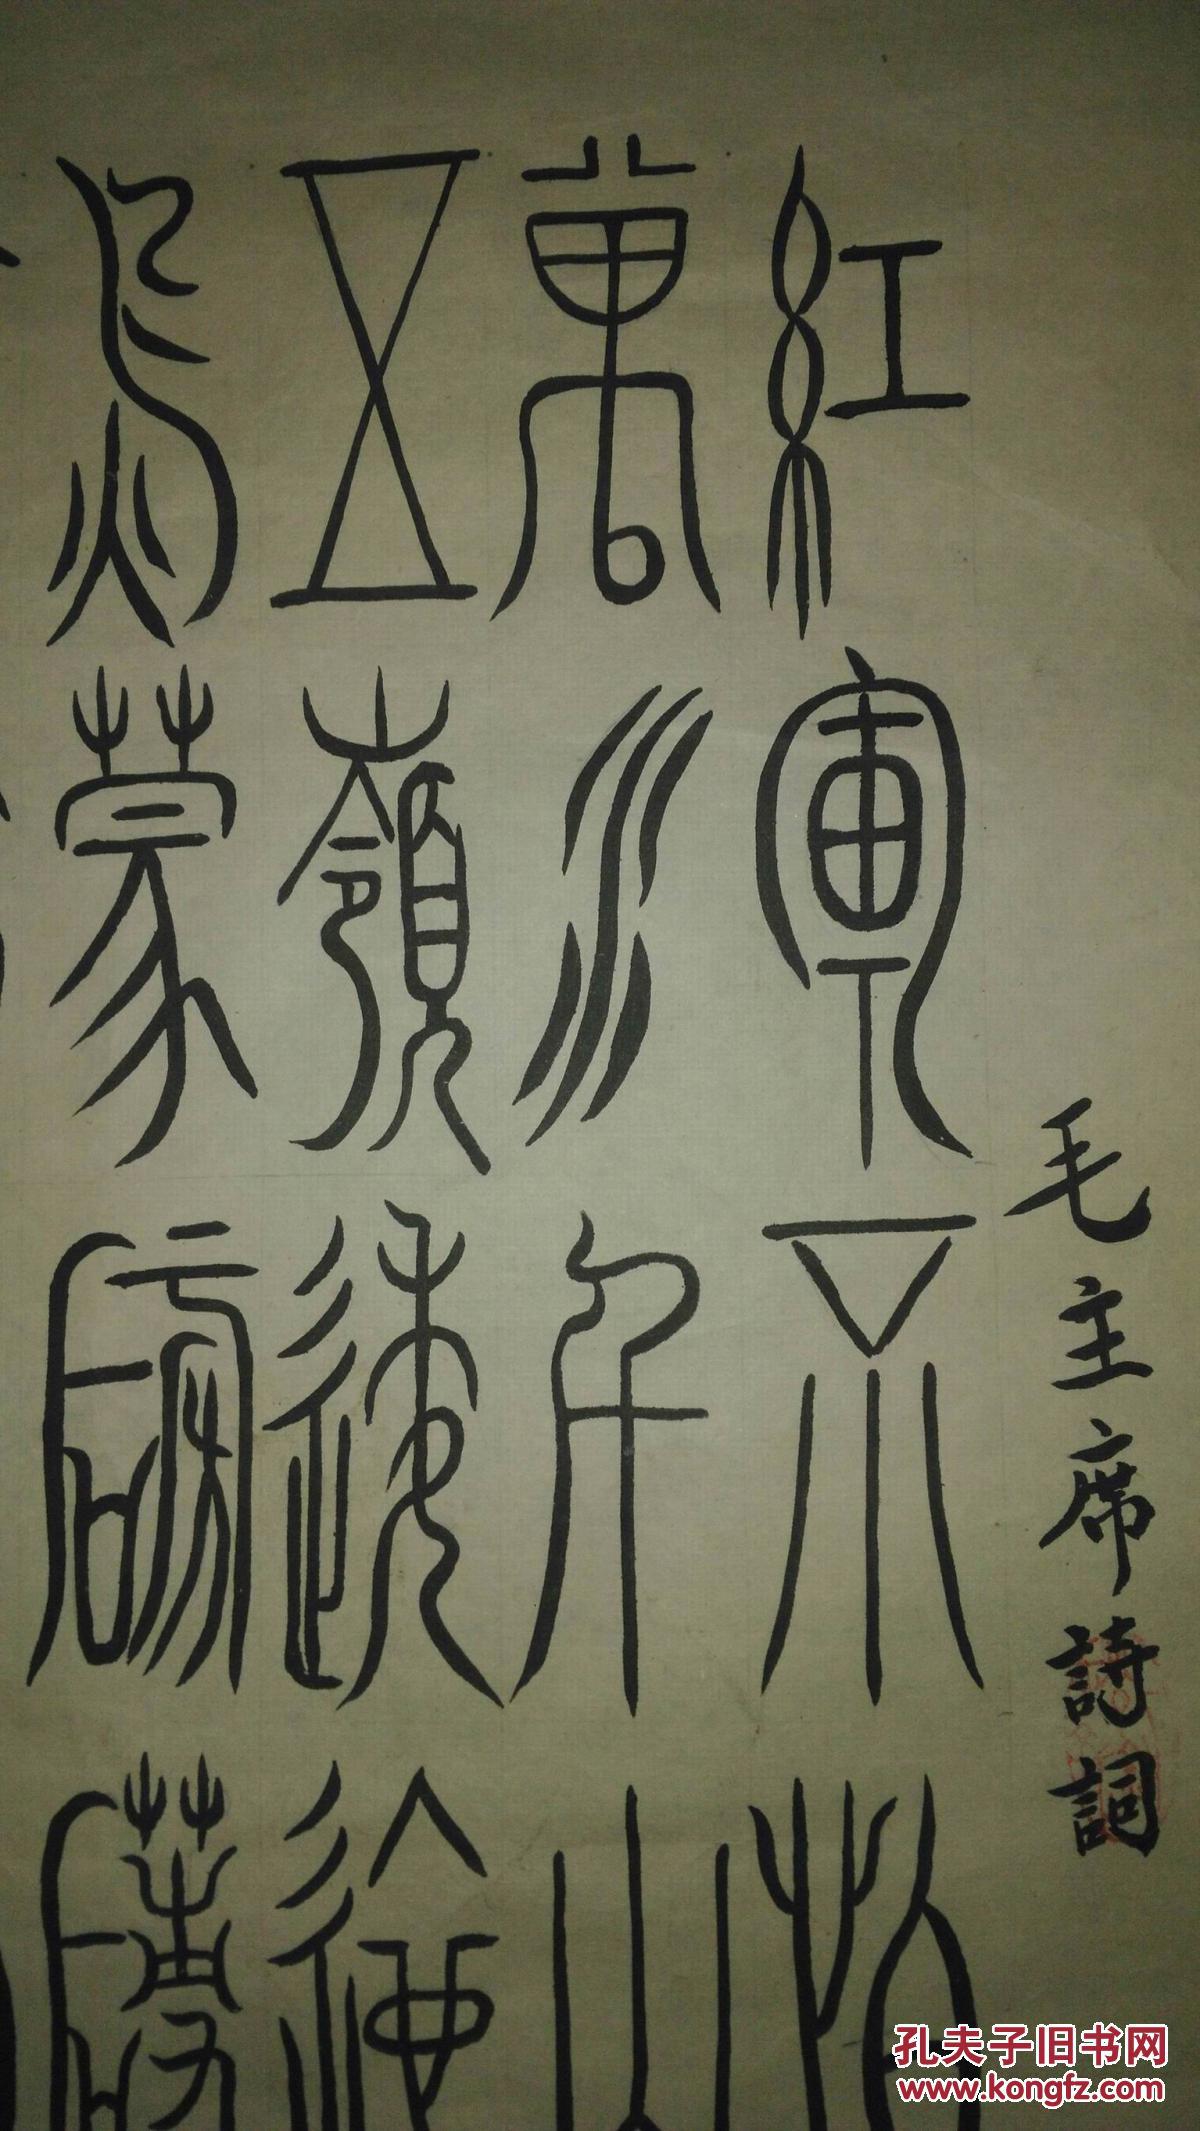 毛主席詩詞
紅軍不怕
萬水千山
五嶺逶迤
烏蒙磅礴
孔夫子旧书网
www.kongfz.com